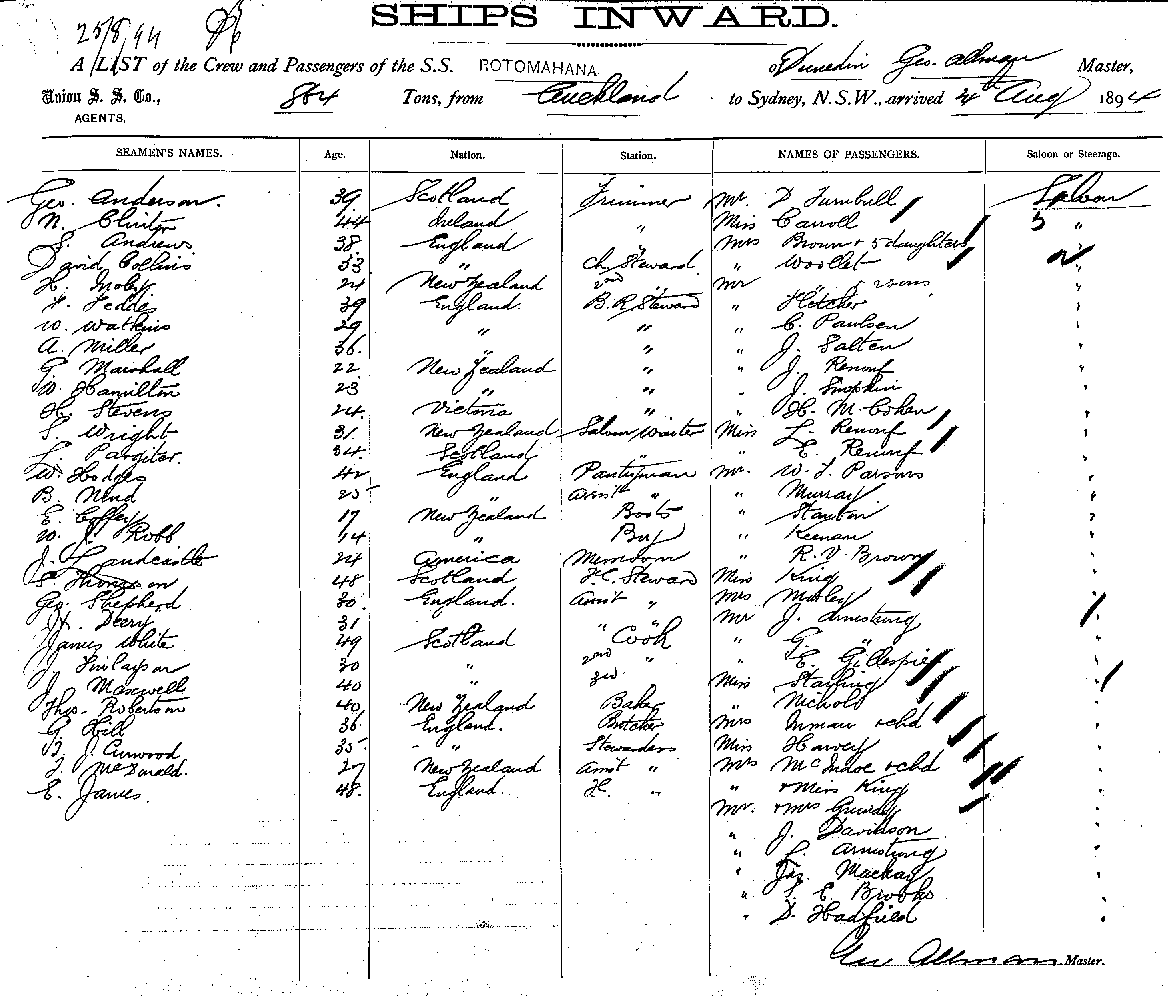 SHIPS INWARD.
25/8/94
A LIST of the Crew and Passengers of the S.S. ROTOMAHANA of Dunedin Geo. Allman Master,
Union S. S. Co., 864 Tons, from Auckland to Sydney, N.S.W., arrived Aug 1894
AGENTS.
SEAMEN'S NAMES. Age. Nation. Station. NAMES OF PASSENGERS. Saloon or Steerage.
Geo. Anderson. 39 Scotland Trimmer Mr. D Turnbull Saloon
N. Clinton 44 Ireland " Miss Carroll 5 "
S. Andrews 38 England Mrs Brown + 5 daughters
David Collins 53 " Ch Steward " Woollet "
24 New Zealand 2nd " Mr "
39 England B.R. Steward " Fletcher "
W. Watkins 29 " " " C. Paulsen "
A. Miller 36 " " " J. Salten "
G Marshall 22 New Zealand " " J. Renouf "
W. Hamilton 23 " " " J. Simpkin "
H. Stevens 24 Victoria " " H. M. Cohen "
S. Wright 31 New Zealand Saloon Waiter Miss L. Renouf "
L. Pargiter. 34 Scotland " " E. Renouf "
W. Hodges 42 England Pantryman Mr. W. J. Parsons "
B. Nind 25 " Assist " " Murray "
E. Coffey 17 New Zealand Boots " Stanton "
W. J. Robb 14 " Boy " Keenan "
J. Landcastle 24 America Messroom " R. V. Brown "
Thompson 48 Scotland F.C. Steward Miss King "
Geo. Shepherd 30 England. Assist " Mrs Morley "
H. Deery 31 " Mr J. Armstrong "
James White 49 Scotland Cook " G. " "
J. Finlayson 30 " 2nd " " E. Gillespie "
J. Maxwell 40 " 3rd " Miss Starling "
Thos. Robertson 40 New Zealand Baker " Nichols "
G Hill 36 England. Butcher Mrs Inman + chd "
B. J. Curwood 35 " " Stewardess Miss Harvey "
J. McDonald. 27 New Zealand Assist " Mrs McIndoe + chd "
E. James. 48 England. F.C. " " + Miss King "
Mr. + Mrs Grundy "
" J. Davidson "
" L. Armstrong "
" Jas. Mackay "
" E Brooks "
" D. Hadfield "
Geo Allman Master.